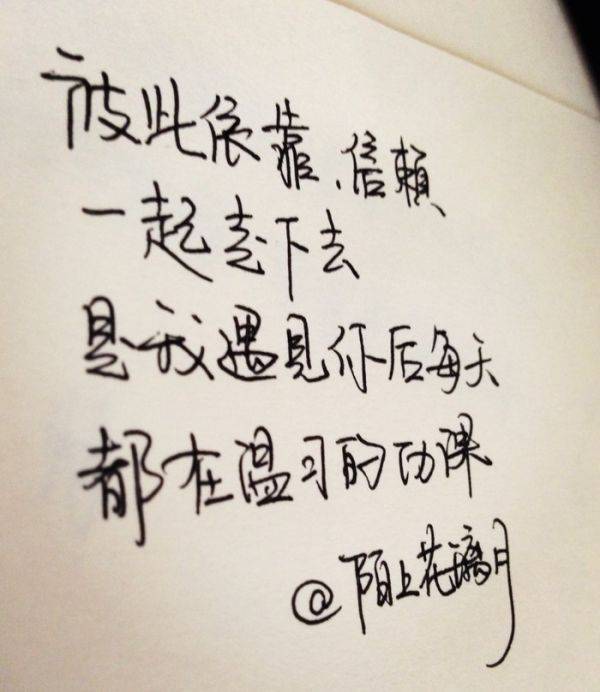 彼此依靠、信賴
一起走下去
是我遇見你后每天
都在温习的功课
@陌上花漪月